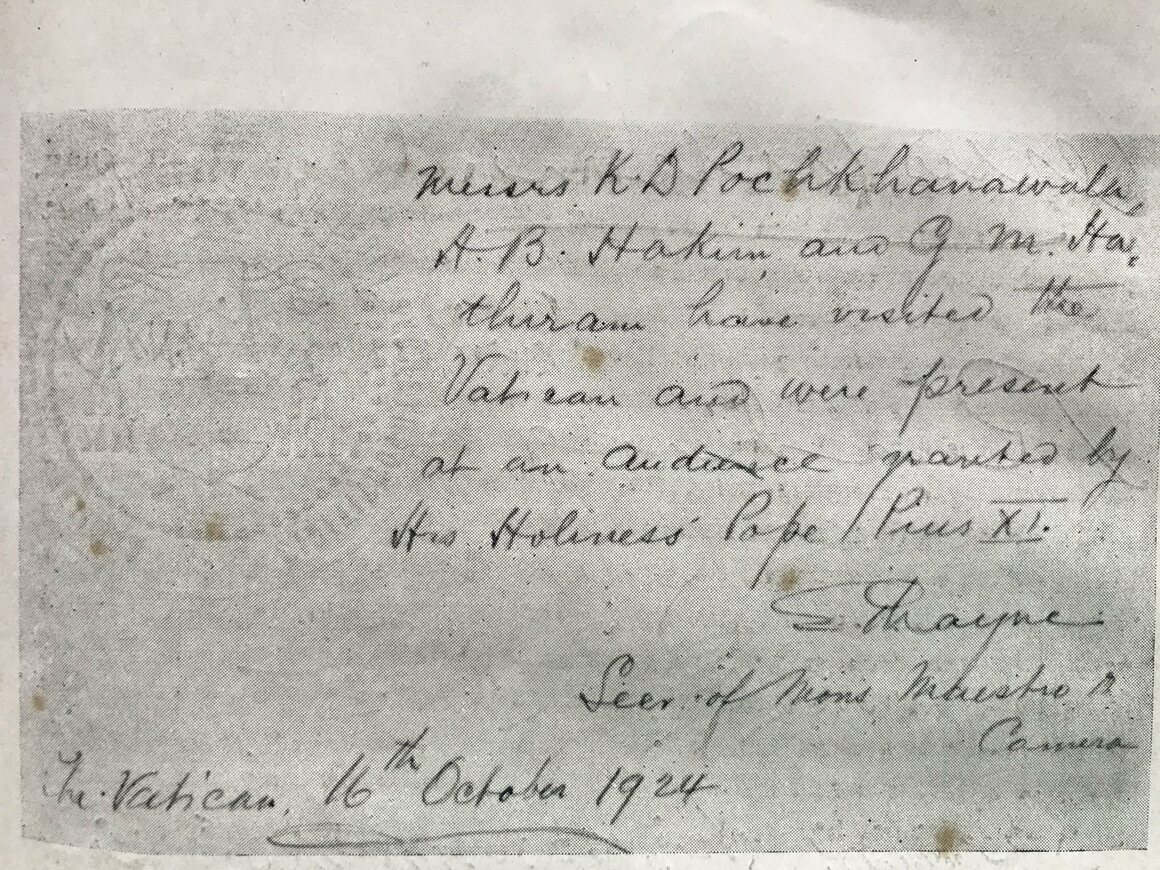 Messrs K. D Pochkhanawala,
A. B. Hakim and G. M. Ha,
thiram have visited the
Vatican and were present
at an audience granted by
His Holiness Pope Pius XI.
Secr. of Mons Maestro
Camera
The Vatican, 16th October 1924